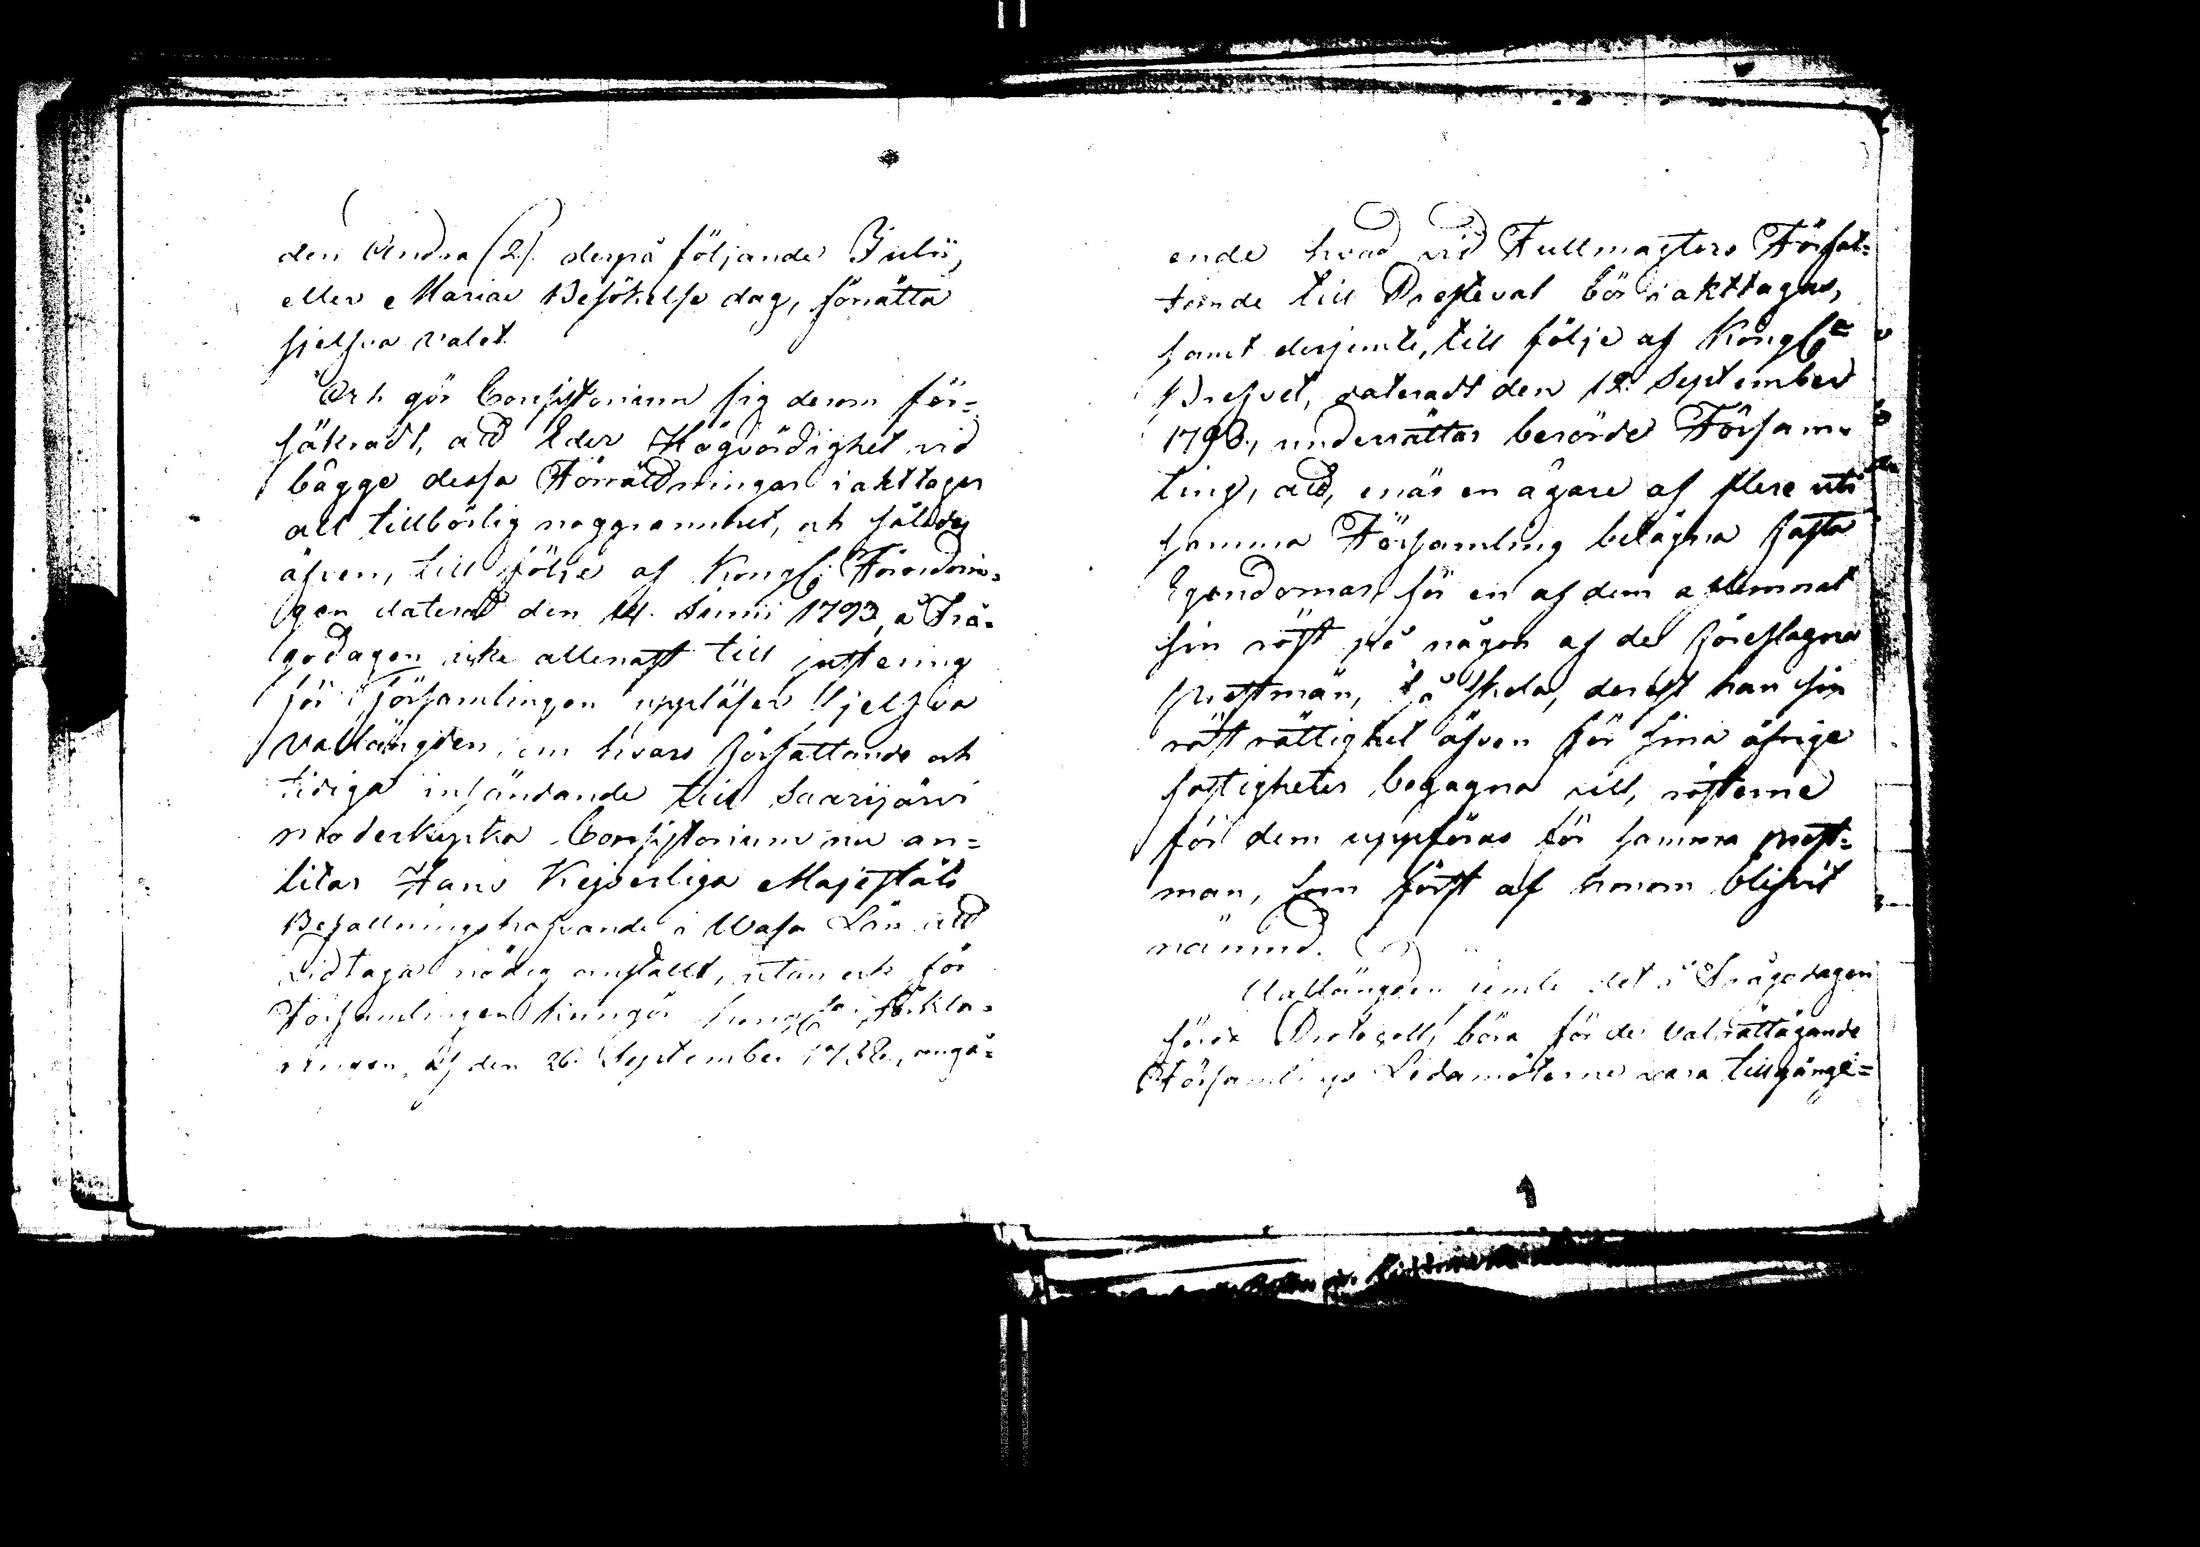 den Andra (2). derpå följande Julii,
eller Mariae Besökelse dag, förrätta
sjelfva valet.
Och gör Consistorium sig derom för-
säkradt, att Eder Högvördighet vid
bägge dessa Förrättningar iakttager
all tillbörlig noggrannhet, och således
äfven, till följe af Kongl: Förordnin-
gen daterad den 14. Junii 1793, å Frå-
godagen icke allenast till justering
för Församlingen uppläser sjelfva
Vallängden, om hvars författande och
tidiga insändande till Saarijärvi
moderkyrka Consistorium nu an-
litar Hans Kejserliga Majestäts
Befallningshafvande i Wasa Län att
vidtaga nödig anstallt, utan och för
Församlingen kungör Förkla-
ringen af den 26. September angå-
ende hvad vid Fullmagters Förfat-
tande till Presteval bör iakttagas,
samt derjemte, till följe af Kongl:a
Brefvet, dateradt den 12. September
1798., underrättar berörde Försam-
ling, att, enär en ägare af flere uti
samma Församling belägna fasta
Egendomar, för en af dem aflemnat
sin röst på någon af de föreslagna
prestmän, så skola, derest han sin
rösträttighet äfven för sina öfrige
fastigheter begagna vill, rösterne
för dem uppföras för samma prest-
man, som först af honom blifvit
nämnd.
Vallängden jemte det å Frågodagen
förde Protocoll, böra för de Valrättägande
Församlings Ledamöterne vara tillgängl-